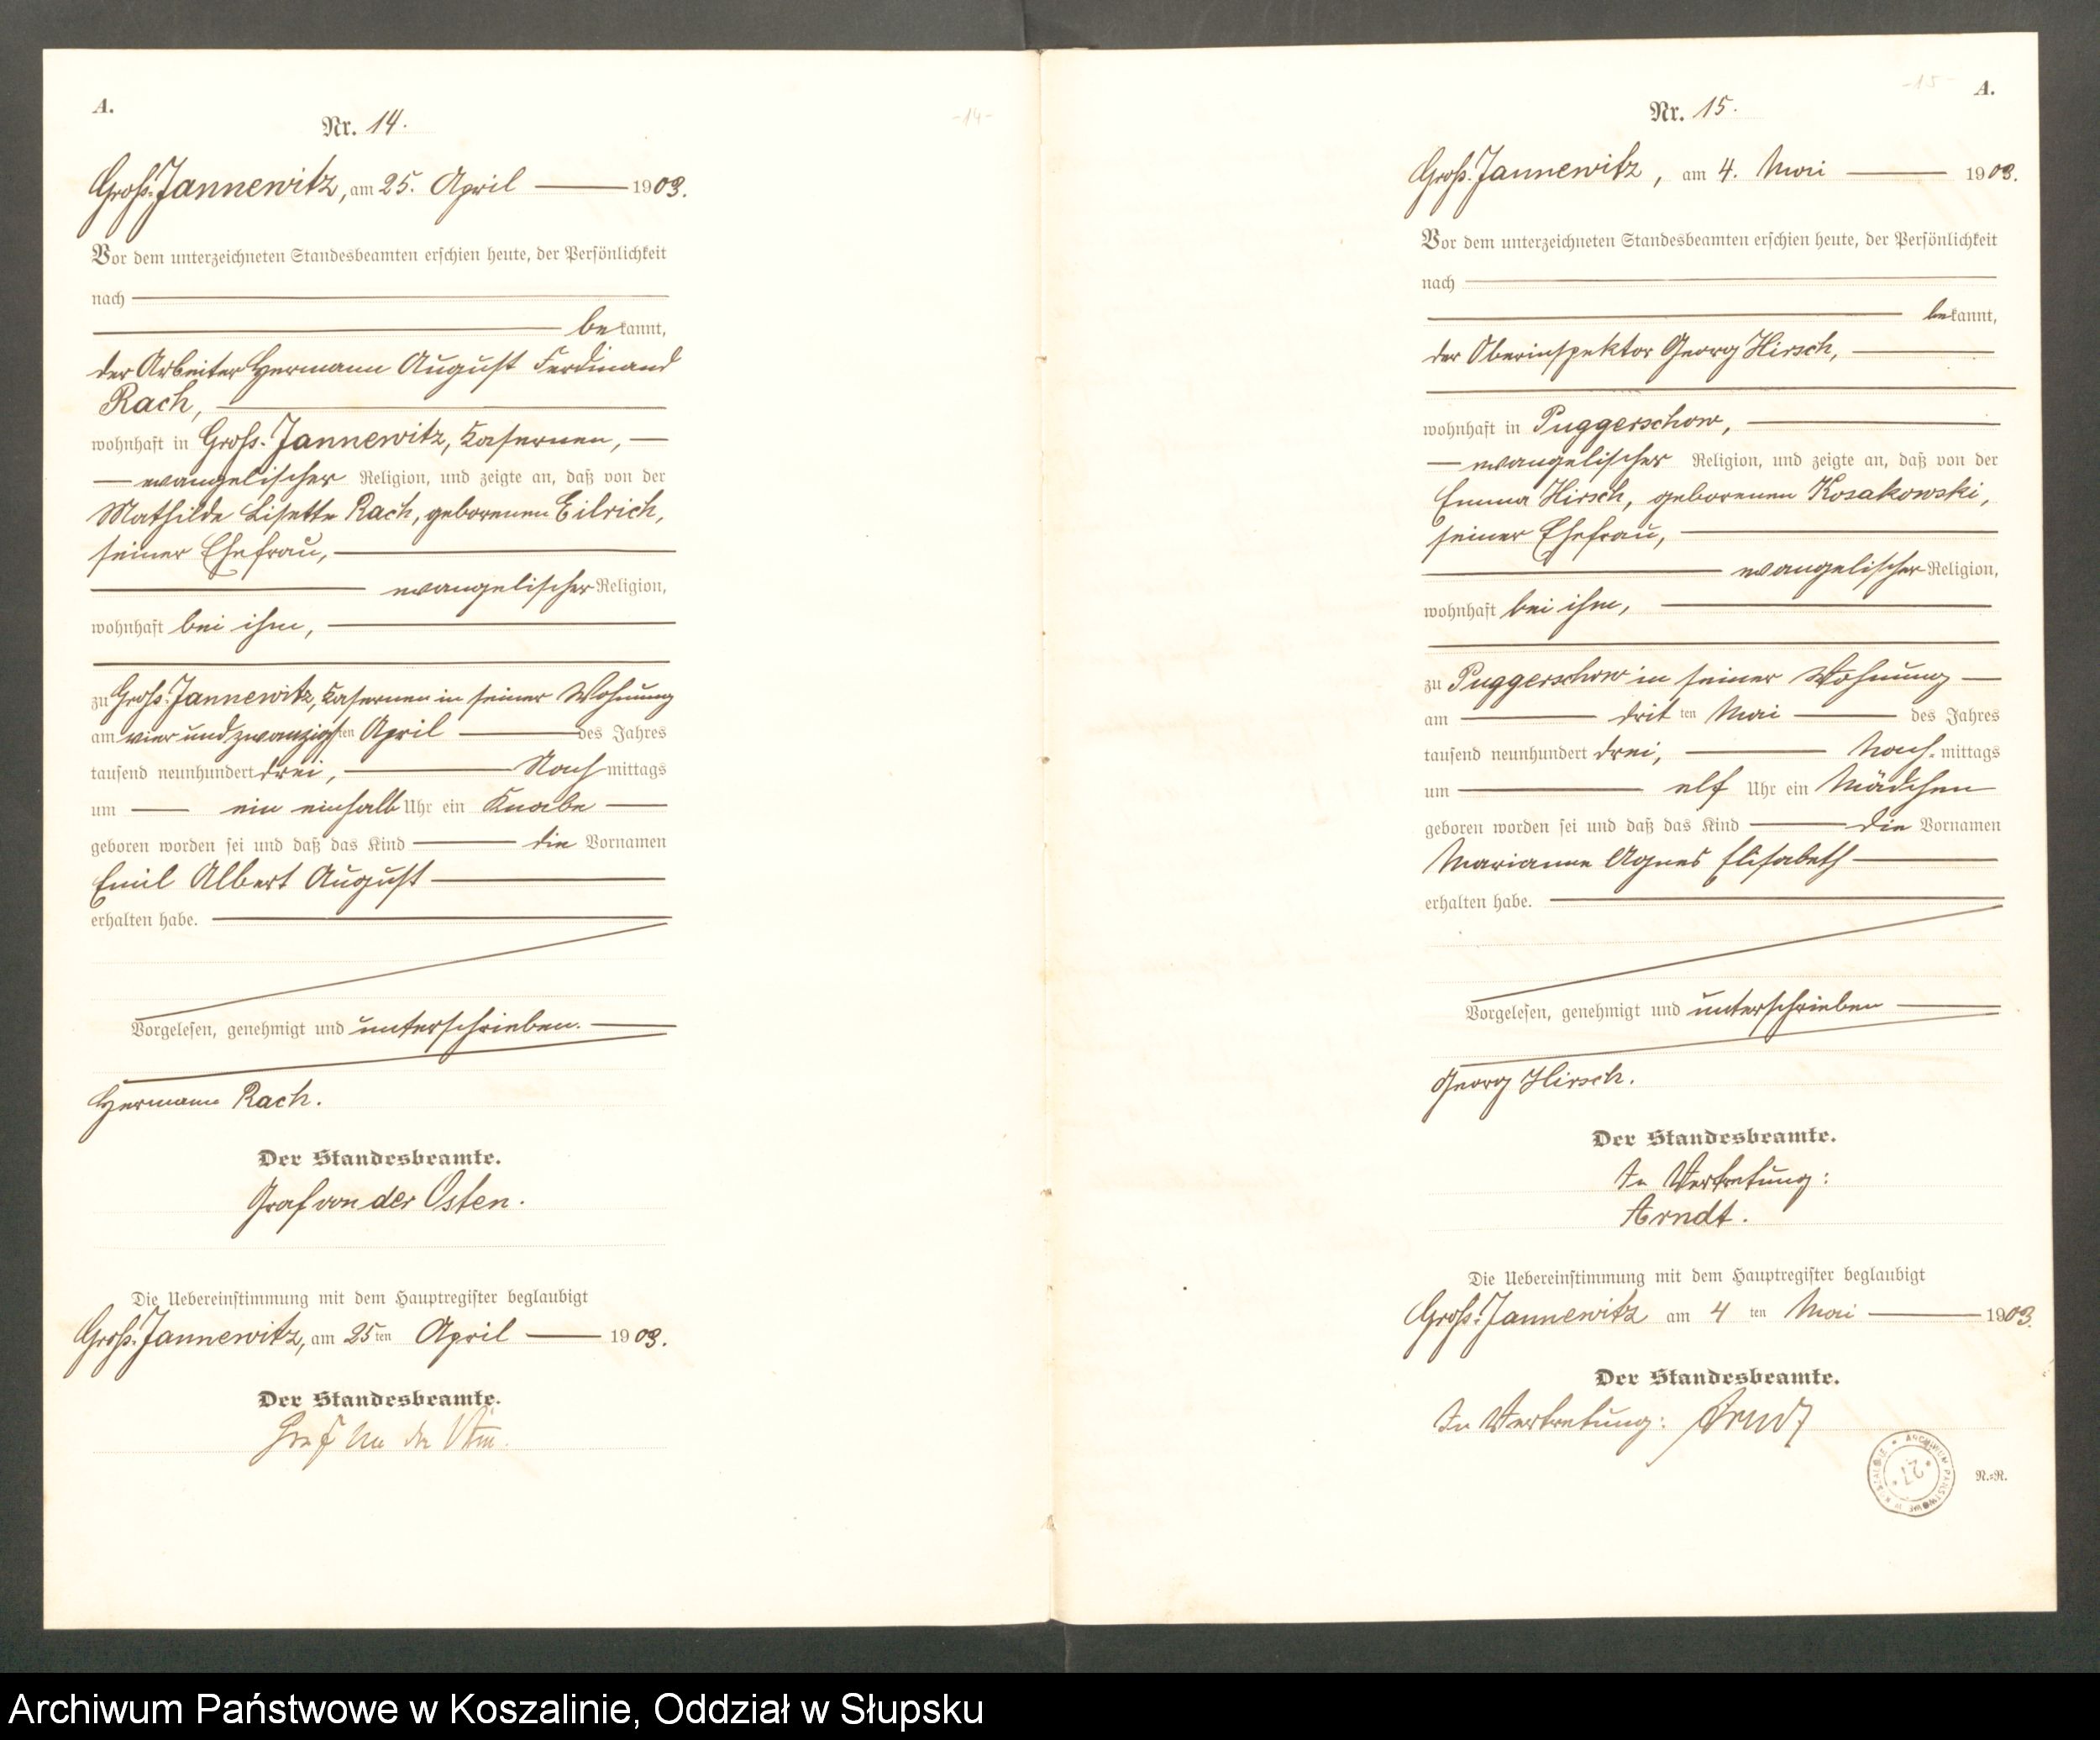 A.
Nr. 14.
Groß-Jannewitz, am 25. April 1903.
Vor dem unterzeichneten Standesbeamten erschien heute, der Persönlichkeit
nach
bekannt,
der Arbeiter Hermann August Ferdinand
Rach,
wohnhaft in Groß-Jannewitz, Kasernen,
evangelischer Religion, und zeigte an, daß von der
Mathilde Lisette Rach, geborenen Eilrich,
seiner Ehefrau,
evangelischer Religion,
wohnhaft bei ihm,
zu Groß-Jannewitz, Kasernen in seiner Wohnung
am vier und zwanzigsten April des Jahres
tausend neunhundert drei, Nachmittags
um ein einhalb Uhr ein Knabe
geboren worden sei und daß das Kind die Vornamen
Emil Albert August
erhalten habe.
Vorgelesen, genehmigt und unterschrieben.
Hermann Rach.
Der Standesbeamte.
Graf von der Osten.
Die Uebereinstimmung mit dem Hauptregister beglaubigt
Groß-Jannewitz, am 25ten April 1903.
Der Standesbeamte.
Graf von der Osten.
-14-
-15-
A.
Nr. 15.
Groß-Jannewitz, am 4. Mai 1903.
Vor dem unterzeichneten Standesbeamten erschien heute, der Persönlichkeit
nach
bekannt,
der Oberinspektor Georg Hirsch,
wohnhaft in Puggerschow,
evangelischer Religion, und zeigte an, daß von der
Emma Hirsch, geborenen Kosakowski,
seiner Ehefrau,
evangelischer Religion,
wohnhaft bei ihm,
zu Puggerschow in seiner Wohnung
am dritten Mai des Jahres
tausend neunhundert drei, Nach-mittags
um elf Uhr ein Mädchen
geboren worden sei und daß das Kind die Vornamen
Marianne Agnes Elisabeth
erhalten habe.
Vorgelesen, genehmigt und unterschrieben
Georg Hirsch.
Der Standesbeamte.
In Vertretung:
Arndt.
Die Uebereinstimmung mit dem Hauptregister beglaubigt
Groß-Jannewitz am 4ten Mai 1903.
Der Standesbeamte.
In Vertretung: Arndt
ARCHIWUM PAŃSTWOWE W KOSZALINIE
* 27 *
N.=R.
Archiwum Państwowe w Koszalinie, Oddział w Słupsku